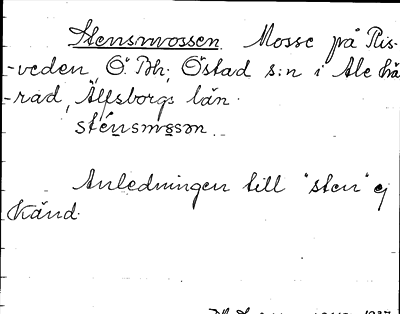 Stensmossen. Mosse på Ris-
-veden, Ö. Bh; Östad s:n i Ale hä
-rad, Älfsborgs län.
sténsmosən.
Anledningen till "sten" ej
känd.
1937